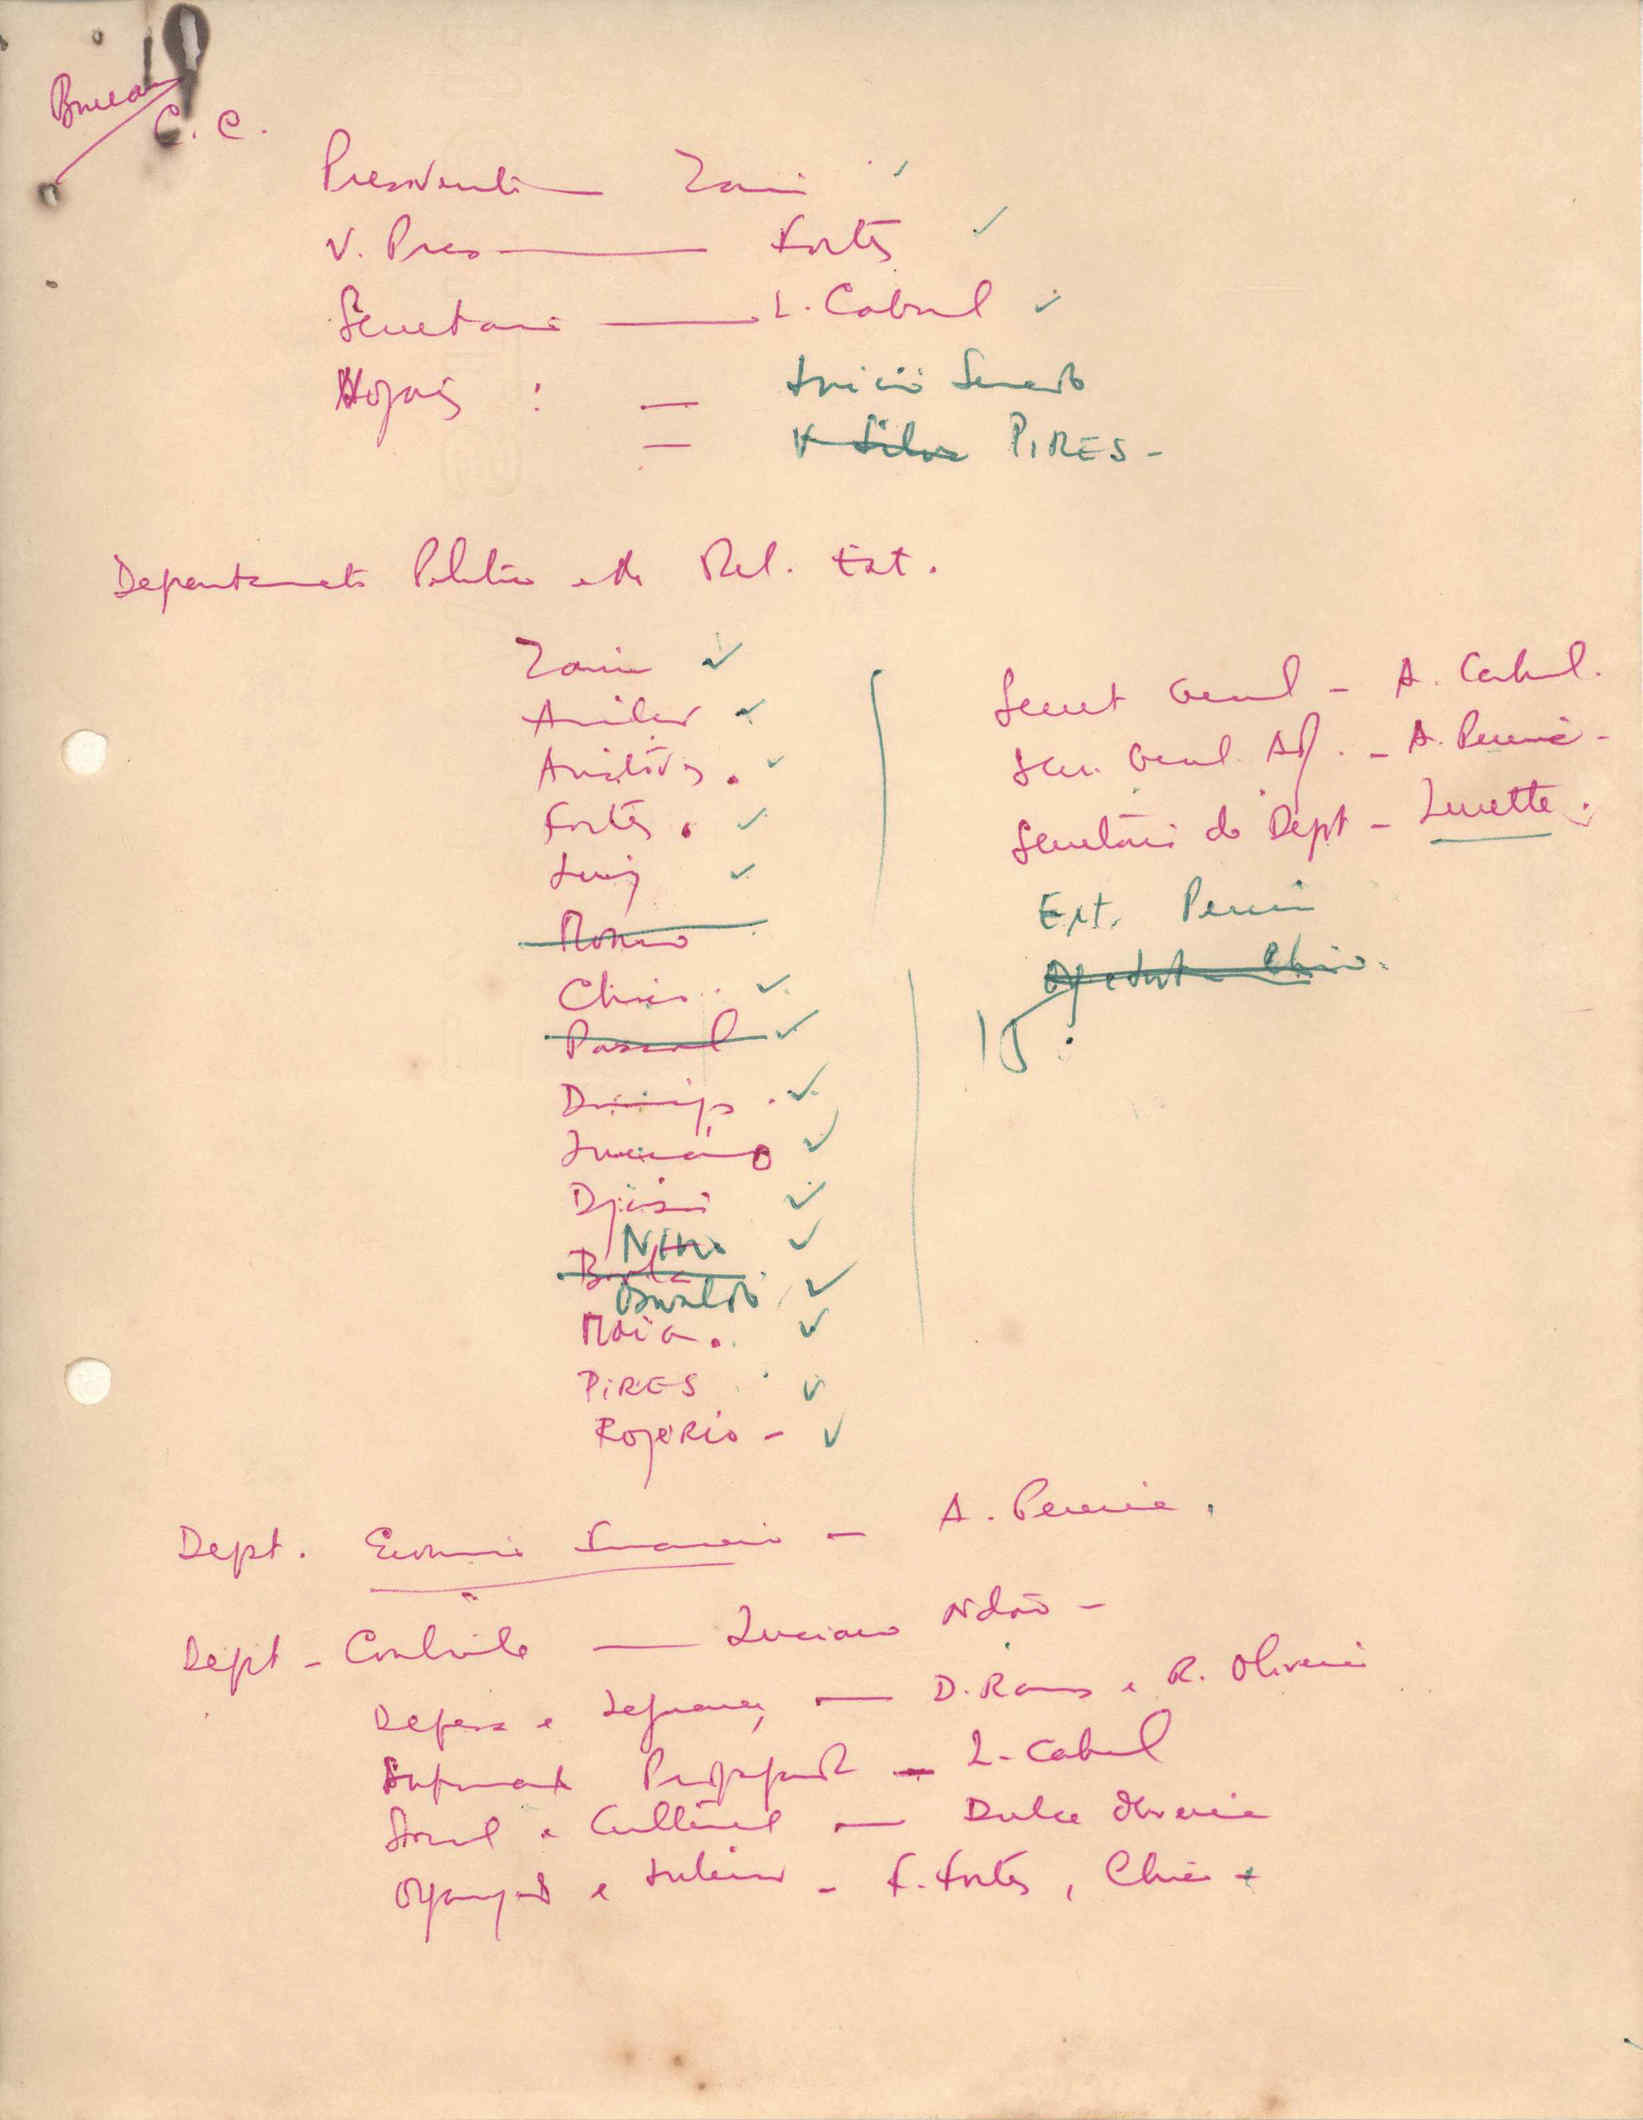 Bureau
C. C.
Presidente — Zain ✓
V. Pres — Fortes ✓
Secretário — L. Cabral ✓
Vogais : —
— V Silva PIRES -
Departamento Político e de Rel. Ext.
Zain ✓
Aristides . ✓
Fortes . ✓
Luiz ✓
Chico . ✓
Pascoal ✓
Domingos . ✓
Luciano ✓
Djassi ✓
Nino ✓
Osvaldo ✓
Maia . ✓
PIRES ✓
ROgéRio - ✓
Secret Geral - A. Cabral.
Sec. Geral Adj. - A. Pereira -
Secretário do Dept - Lucette .
Ext. Pereira
15
Dept. Economia Finanças - A. Pereira .
Dept - Contrôle — Luciano Ndao -
Defesa e Segurança — D. Ramos e R. Oliveira
Informação Propaganda — L. Cabral
Social e Cultural — Dulce Oliveira
Organização e Interior - F. Fortes , Chico +